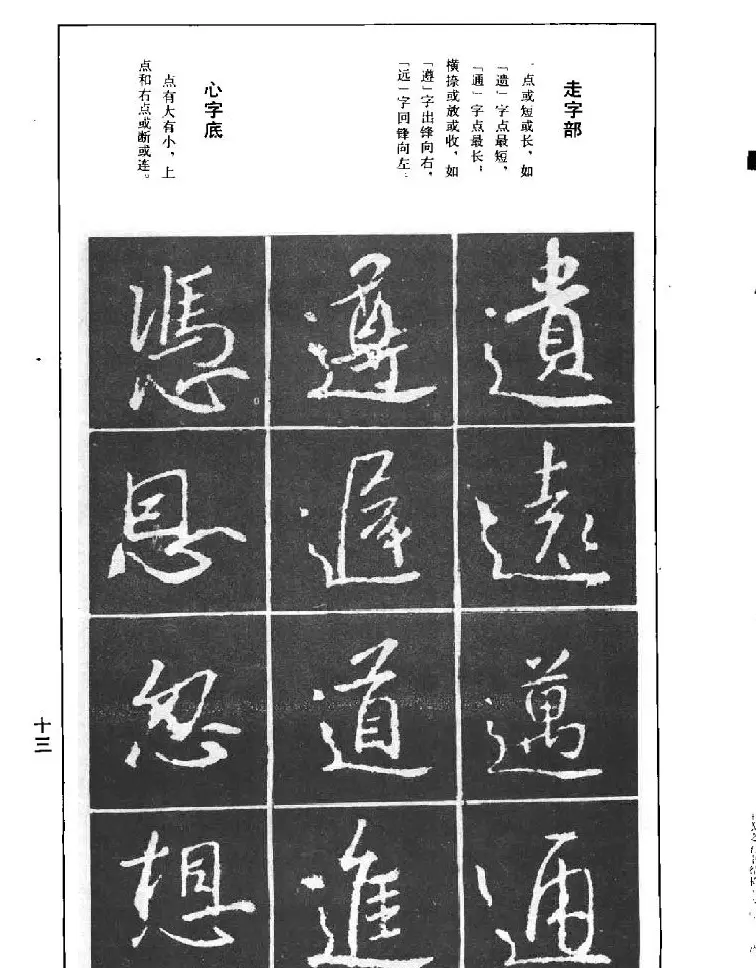 走字部
点或短或长，如
「遗」字点最短，
「通」字点最长；
横捺或放或收，如
「遵」字出锋向右，
「远」字回锋向左。
心字底
点有大有小，上
点和右点或断或连。
遺
遠
邁
通
遵
遲
道
進
憑
恩
忽
想
十三